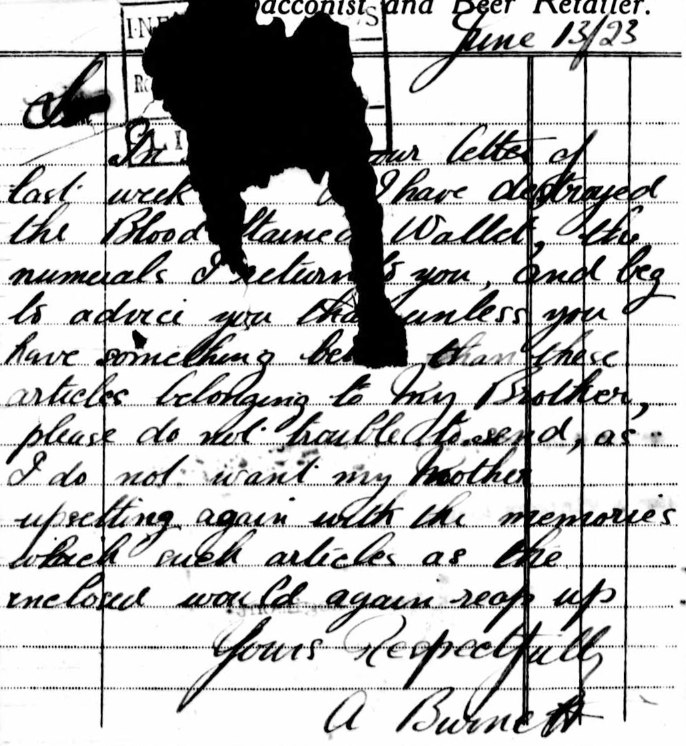 bacconist and Beer Retailer.
June 13/23
Sir
In our letter of
last week I have destroyed
the Blood Stained Wallet, the
numerals I return to you, and beg
to advice you tha unless you
have something be than these
articles belonging to my Brother,
please do not trouble to send, as
I do not want my Mother
upsetting again with the memories
which such articles as the
enclosed would again reap up
Yours Respectfully
A Burnett